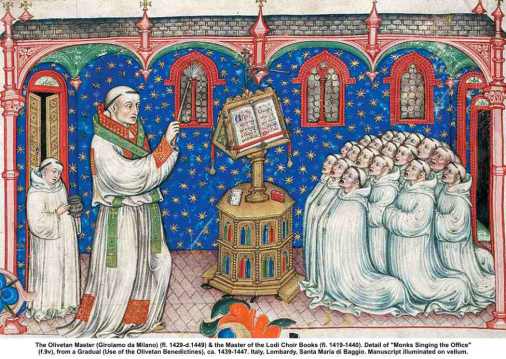 The Olivetan Master (Girolamo da Milano) (fl. 1429-d.1449) & the Master of the Lodi Choir Books (fl. 1419-1440). Detail of "Monks Singing the Office"
(f.9v), from a Gradual (Use of the Olivetan Benedictines), ca. 1439-1447. Italy, Lombardy, Santa Maria di Baggio. Manuscript illuminated on vellum.